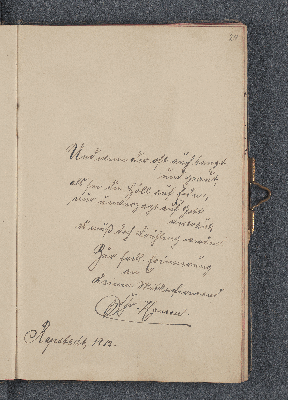 Und wenn dir oft auch bangt
und graut,
als sei die Höll' auf Erden,
nur unverzagt auf Gott
vertraut,
es muß doch Frühling werden.
Zur frdl. Erinnerung
an
Deinen
Hansen.
Rapstedt, 1903.